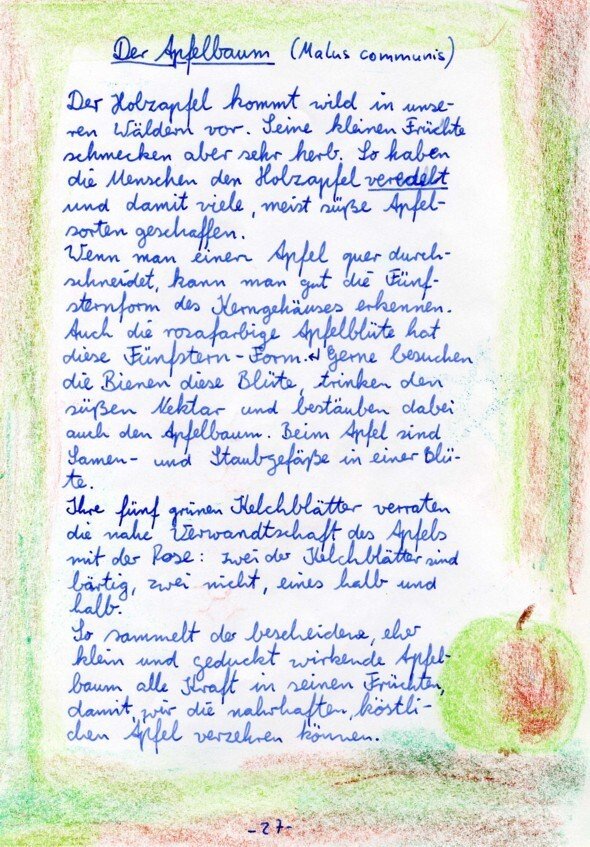 Der Apfelbaum (Malus communis)
Der Holzapfel kommt wild in unse-
ren Wäldern vor. Seine kleinen Früchte
schmecken aber sehr herb. So haben
die Menschen den Holzapfel veredelt
und damit viele, meist süße Apfel-
sorten geschaffen.
Wenn man einen Apfel quer durch-
schneidet, kann man gut die Fünf-
sternform des Kerngehäuses erkennen.
Auch die rosafarbige Apfelblüte hat
diese Fünfstern-Form.↵ Gerne besuchen
die Bienen diese Blüte, trinken den
süßen Nektar und bestäuben dabei
auch den Apfelbaum. Beim Apfel sind
Samen- und Staubgefäße in einer Blü-
te.
Ihre fünf grünen Kelchblätter verraten
die nahe Verwandtschaft des Apfels
mit der Rose: zwei der Kelchblätter sind
bärtig, zwei nicht, eines halb und
halb.
So sammelt der bescheidene, eher
klein und geduckt wirkende Apfel-
baum alle Kraft in seinen Früchten,
damit wir die nahrhaften, köstli-
chen Äpfel verzehren können.
-27-